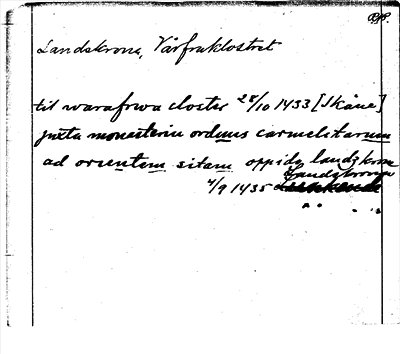 Landskrona, Vårfruklostret
til warafrwa closter 28/10 1433 [Skåne]
juxta monesteriu ordinis carmelitarum
ad orientem sitam oppidu landzkrone
Landzkrona
4/9 1435